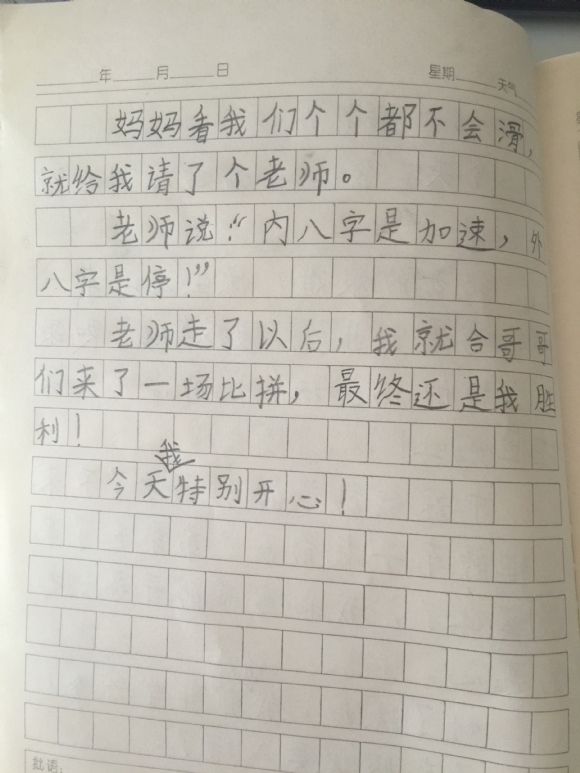 年 月 日 星期 天气
妈妈看我们个个都不会滑,
就给我请了个老师。
老师说:“内八字是加速,外
八字是停!”
老师走了以后,我就合哥哥
们来了一场比拼,最终还是我胜
利!
我
今天特别开心!
批语: